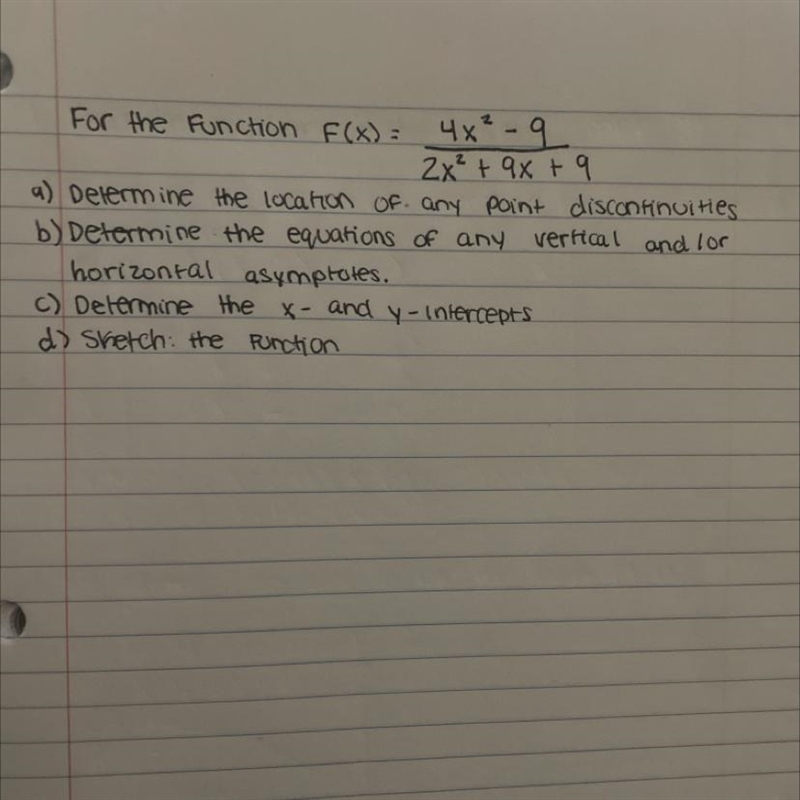 For the Function F(x) = 4x² - 9 / 2x² + 9x + 9
a) Determine the location of any point discontinuities
b) Determine the equations of any vertical and/or
horizontal asymptotes.
c) Determine the x- and y-intercepts
d) Sketch: the Function